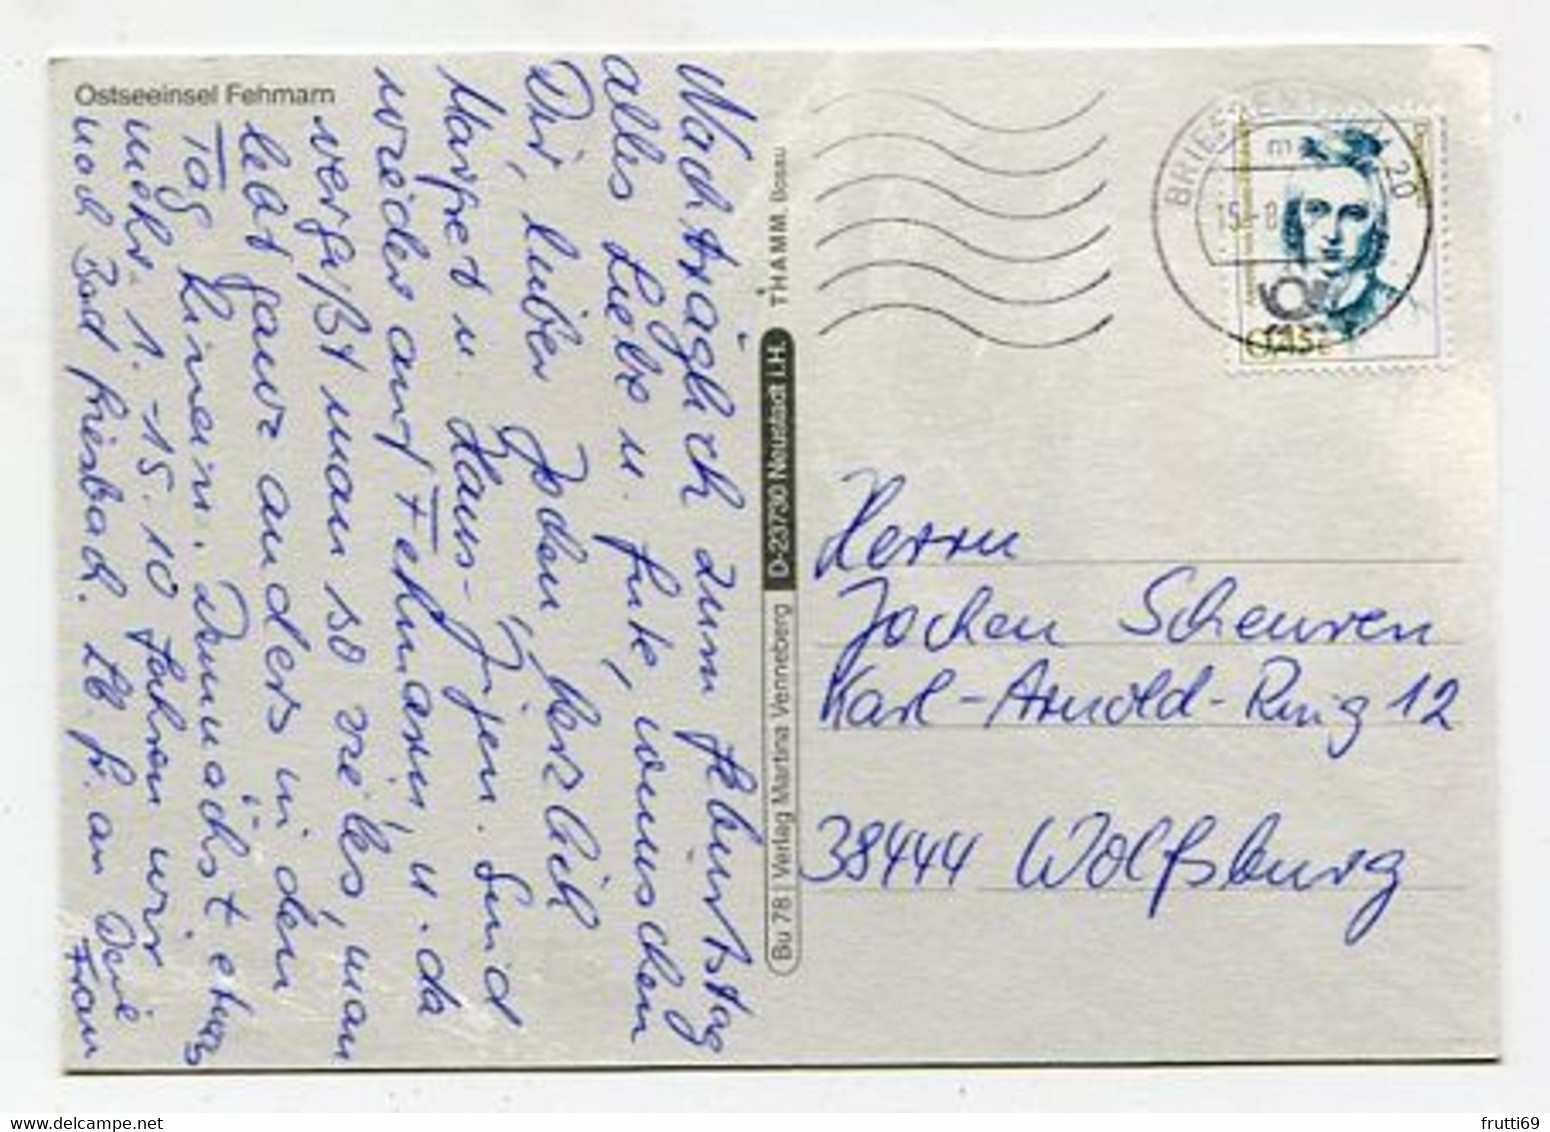 Ostseeinsel Fehmarn
Nachträglich zum Geburtstag
alles Liebe u. Gute, wünschen
Dir, lieber Jochen, herzlich
Margret u. Hans-Jürgen. Sind
wieder auf Fehmarn, u. da
vergißt man so vieles, man
lebt ganz anders in den
Tag hinein. Demnächst etwas
mehr. 1.-15.10 fahren wir
nach Bad Griesbach. LG. an Deine
Frau
THAMM, Bosau
D-23730 Neustadt i.H.
Bu 78 | Verlag Martina Venneberg
BRIEFZENTRUM 20
Herrn
Jochen Scheuren
Karl-Arnold-Ring 12
38444 Wolfsburg
frutti69